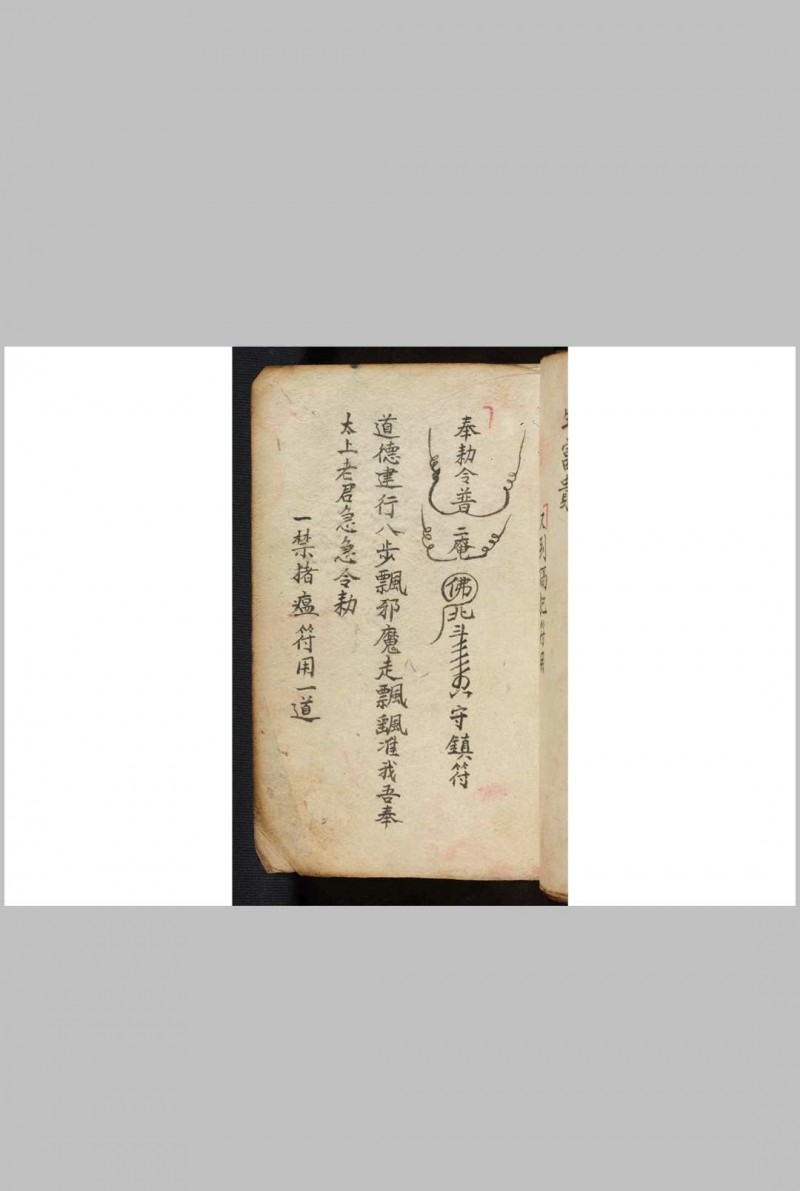 奉勅令普二庵佛北斗守鎮符
道德建行八步飄邪魔走飄飄准我吾奉
太上老君急急令勅
一禁措瘟符用一道